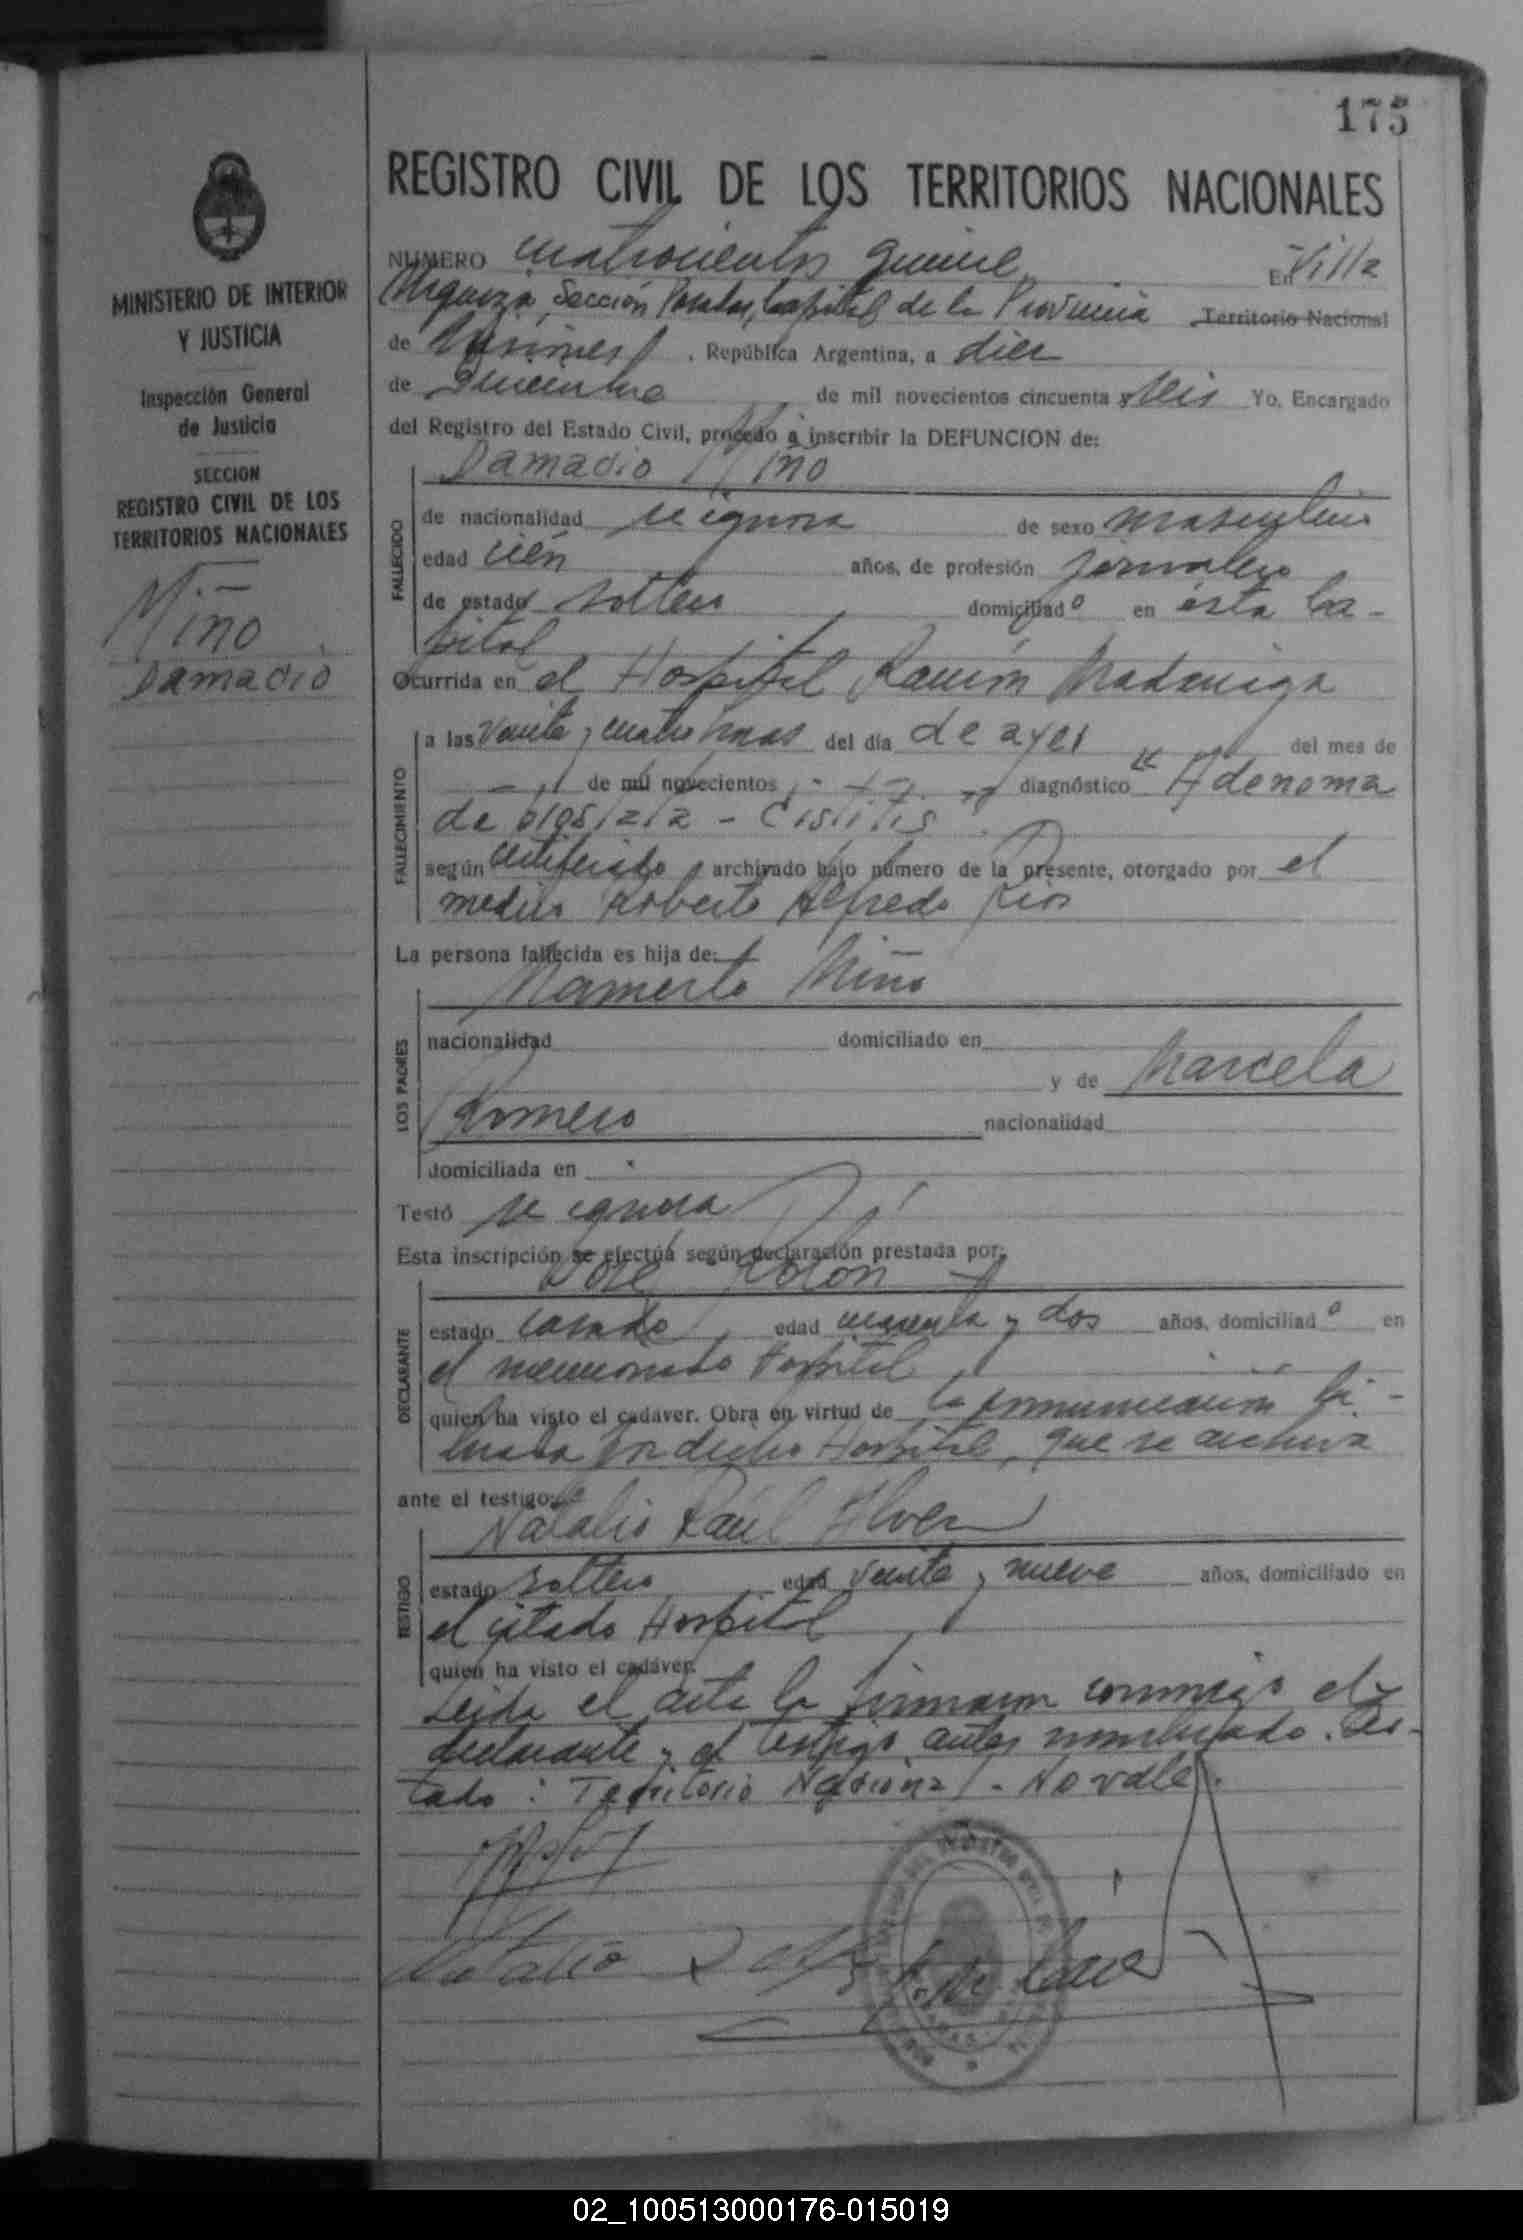 175
REGISTRO CIVIL DE LOS TERRITORIOS NACIONALES
MINISTERIO DE INTERIOR
Y JUSTICIA
Inspección General
de Justicia
SECCION
REGISTRO CIVIL DE LOS
TERRITORIOS NACIONALES
Miño
Damacio
NUMERO cuatrocientos quince En Villa
Urquiza, Sección Posadas, Capital de la Provincia Territorio Nacional
de Misiones, República Argentina, a diez
de de mil novecientos cincuenta seis Yo, Encargado
del Registro del Estado Civil, procedo a inscribir la DEFUNCION de:
Damacio Miño
FALLECIDO
de nacionalidad se ignora de sexo masculino
edad cién años, de profesión jornalero
de estado soltero domiciliado en esta Ca-
pital
Ocurrida en el Hospital Ramón Madariaga
FALLECIMIENTO
a las veinte y cuatro horas del día de ayer del mes de
de mil novecientos diagnóstico "Adenoma
de prostata - Cistitis"
según certificado archivado bajo número de la presente, otorgado por el
medico Roberto Alfredo Rios
La persona fallecida es hija de:
Mamerto Miño
LOS PADRES
nacionalidad domiciliado en
y de Marcela
Romero nacionalidad
domiciliada en
Testó se ignora
Esta inscripción se efectúa según declaración prestada por:
José Rolón
DECLARANTE
estado casado edad cuarenta y dos años, domiciliado en
el mencionado Hospital
quien ha visto el cadáver. Obra en virtud de la comunicación fir-
mada en dicho Hospital, que se archiva
ante el testigo:
Natalio Raúl
TESTIGO
estado soltero edad veinte y nueve años, domiciliado en
el citado Hospital
quien ha visto el cadáver.
Leida el acta la firmaron conmigo el
declarante y el testigo antes nombrado. Tes-
tado: Territorio Nacional - No vale.
Natalio
02_100513000176-015019